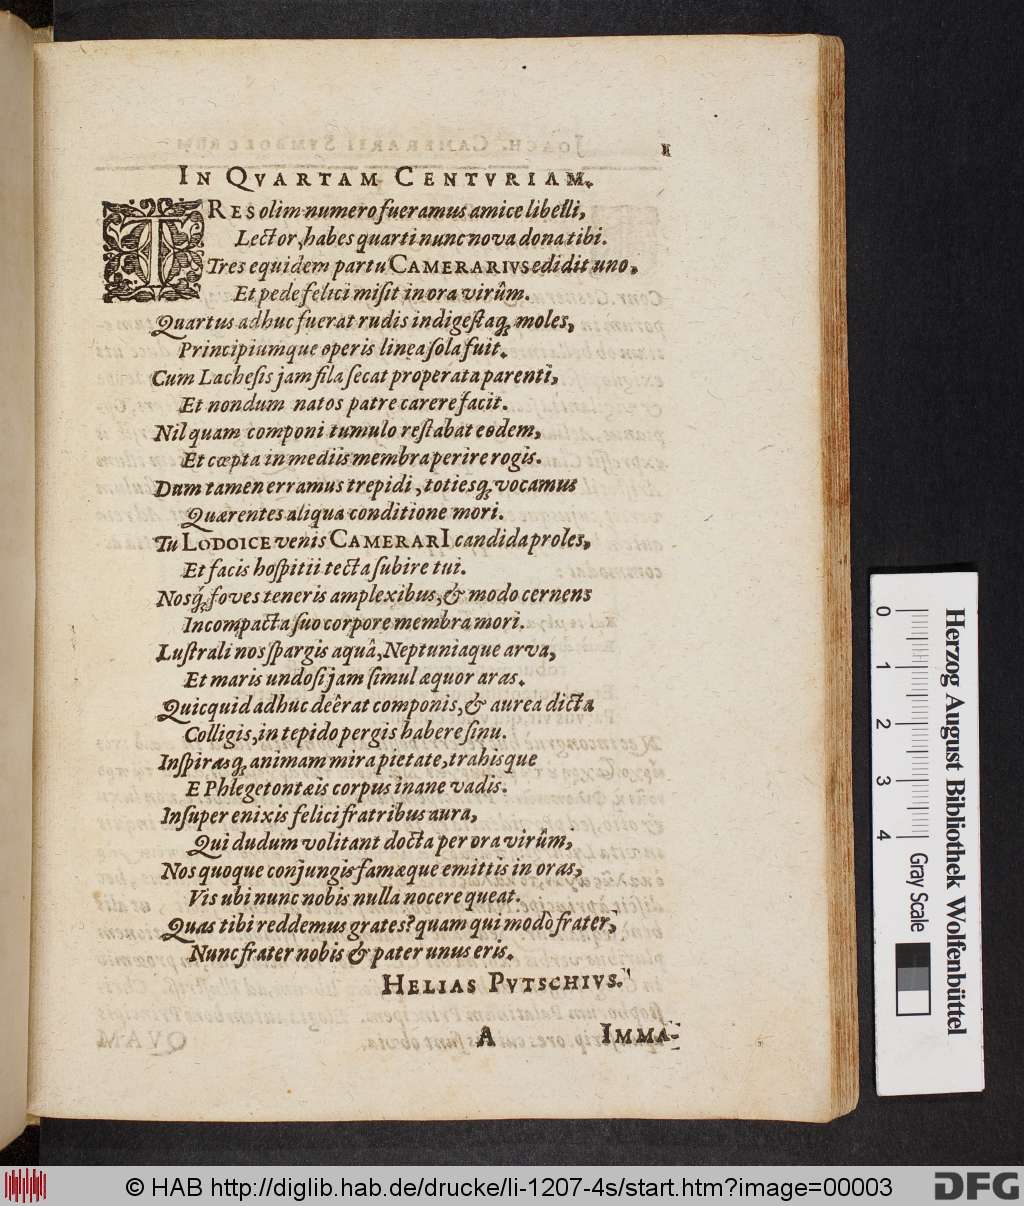 1
IN QVARTAM CENTVRIAM.
TRES olim numero fueramus amice libelli,
Lector, habes quarti nunc nova dona tibi.
Tres equidem partu CAMERARIVS edidit uno,
Et pede felici misit in ora virûm.
Quartus adhuc fuerat rudis indigestaq́; moles,
Principiumque operis linea sola fuit.
Cum Lachesis jam fila secat properata parenti,
Et nondum natos patre carere facit.
Nil quam componi tumulo restabat eodem,
Et cœpta in mediis membra perire rogis.
Dum tamen erramus trepidi, totiesq́; vocamus
Quærentes aliqua conditione mori.
Tu LODOICE venis CAMERARI candida proles,
Et facis hospitii tecta subire tui.
Nosq́; foves teneris amplexibus, & modo cernens
Incompacta suo corpore membra mori.
Lustrali nos spargis aquâ, Neptuniaque arva,
Et maris undosi jam simul æquor aras.
Quicquid adhuc deêrat componis, & aurea dicta
Colligis, in tepido pergis habere sinu.
Inspirasq́; animam mira pietate, trahisque
E Phlegetontæis corpus inane vadis.
Insuper enixis felici fratribus aura,
Qui dudum volitant docta per ora virûm,
Nos quoque conjungis famæque emittis in oras,
Vis ubi nunc nobis nulla nocere queat.
Quas tibi reddemus grates? quam qui modo frater,
Nunc frater nobis & pater unus eris.
HELIAS PVTSCHIVS.
A IMMA-
0 1 2 3 4
Gray Scale
Herzog August Bibliothek Wolfenbüttel
© HAB http://diglib.hab.de/drucke/li-1207-4s/start.htm?image=00003
DFG